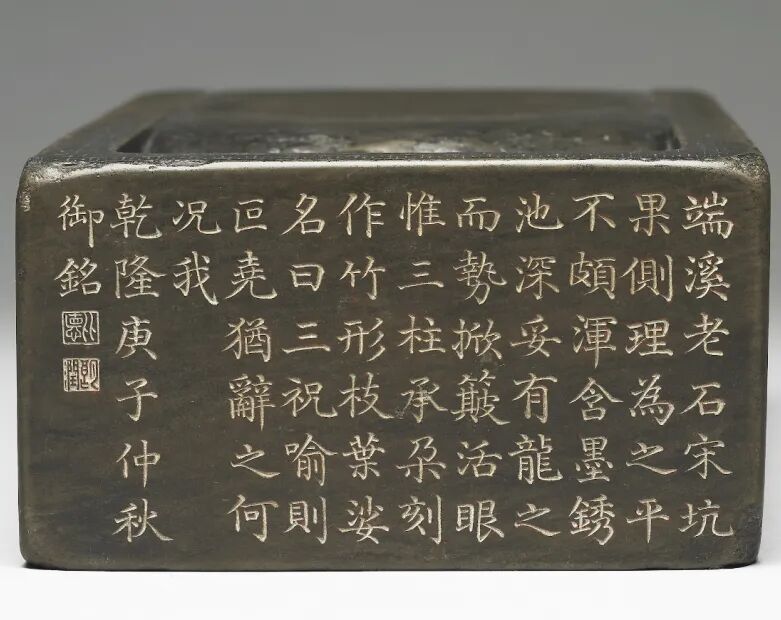 端溪老石宋坑
果側理為之平
不頗渾含墨銹
池深妥有龍之
而勢掀簸活眼
惟三柱承朶刻
作竹形枝葉娑
名曰三祝喻則
叵堯猶辭之何
况我
乾隆庚子仲秋
御銘
比悳
朗潤